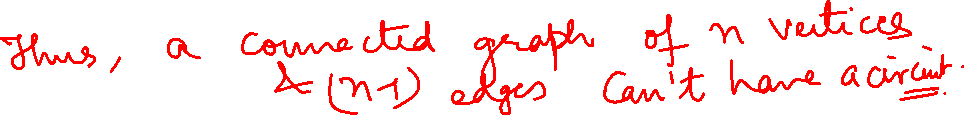 Thus, a connected graph of n vertices
& (n-1) edges can't have a circuit.